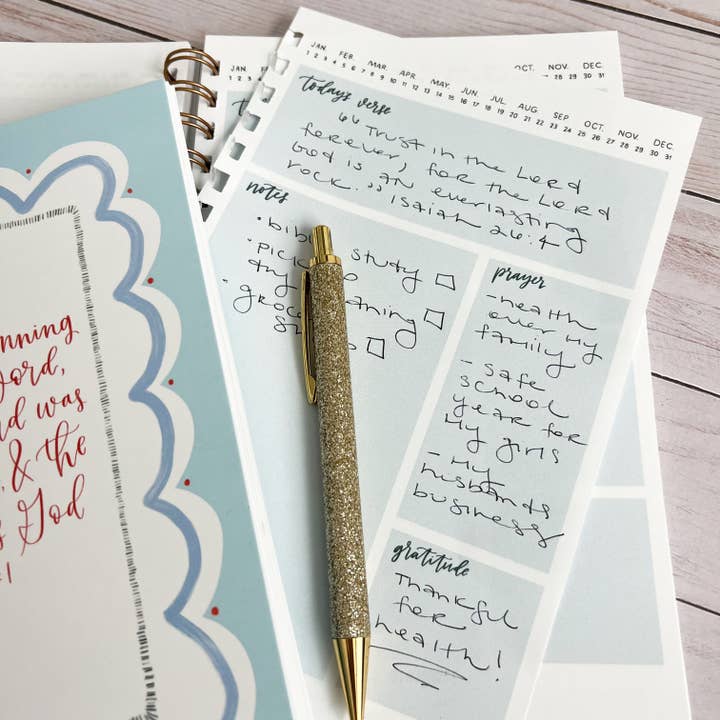 nning
ord,
d was
& the
God
JAN. FEB. MAR. APR. MAY. JUN. JUL. AUG SEP OCT. NOV. DEC.
1 2 3 4 5 6 7 8 9 10 11 12 13 14 15 16 17 18 19 20 21 22 23 24 25 26 27 28 29 30 31
OCT. NOV. DEC.
28 29 30 31
todays verse
“Trust in the Lord
forever, for the Lord
God is an everlasting
rock.” Isaiah 26:4
notes
• bib study
• pick
dry aning
• groce
prayer
- health
over my
family
- safe
school
year for
my girls
- my
husbands
business
gratitude
Thankful
for
health!